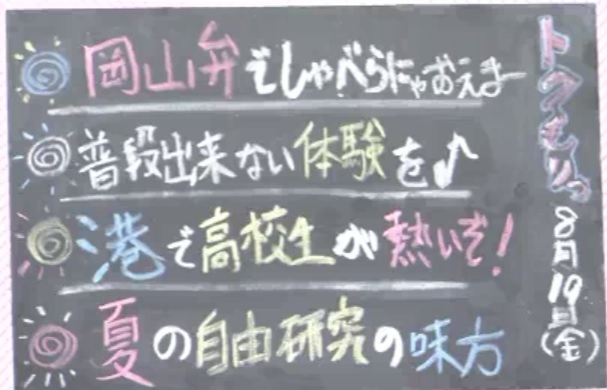 岡山弁でしゃべらにゃおえまー
普段出来ない体験を♪
港で高校生が熱いぞ!
夏の自由研究の味方
8月19日(金)